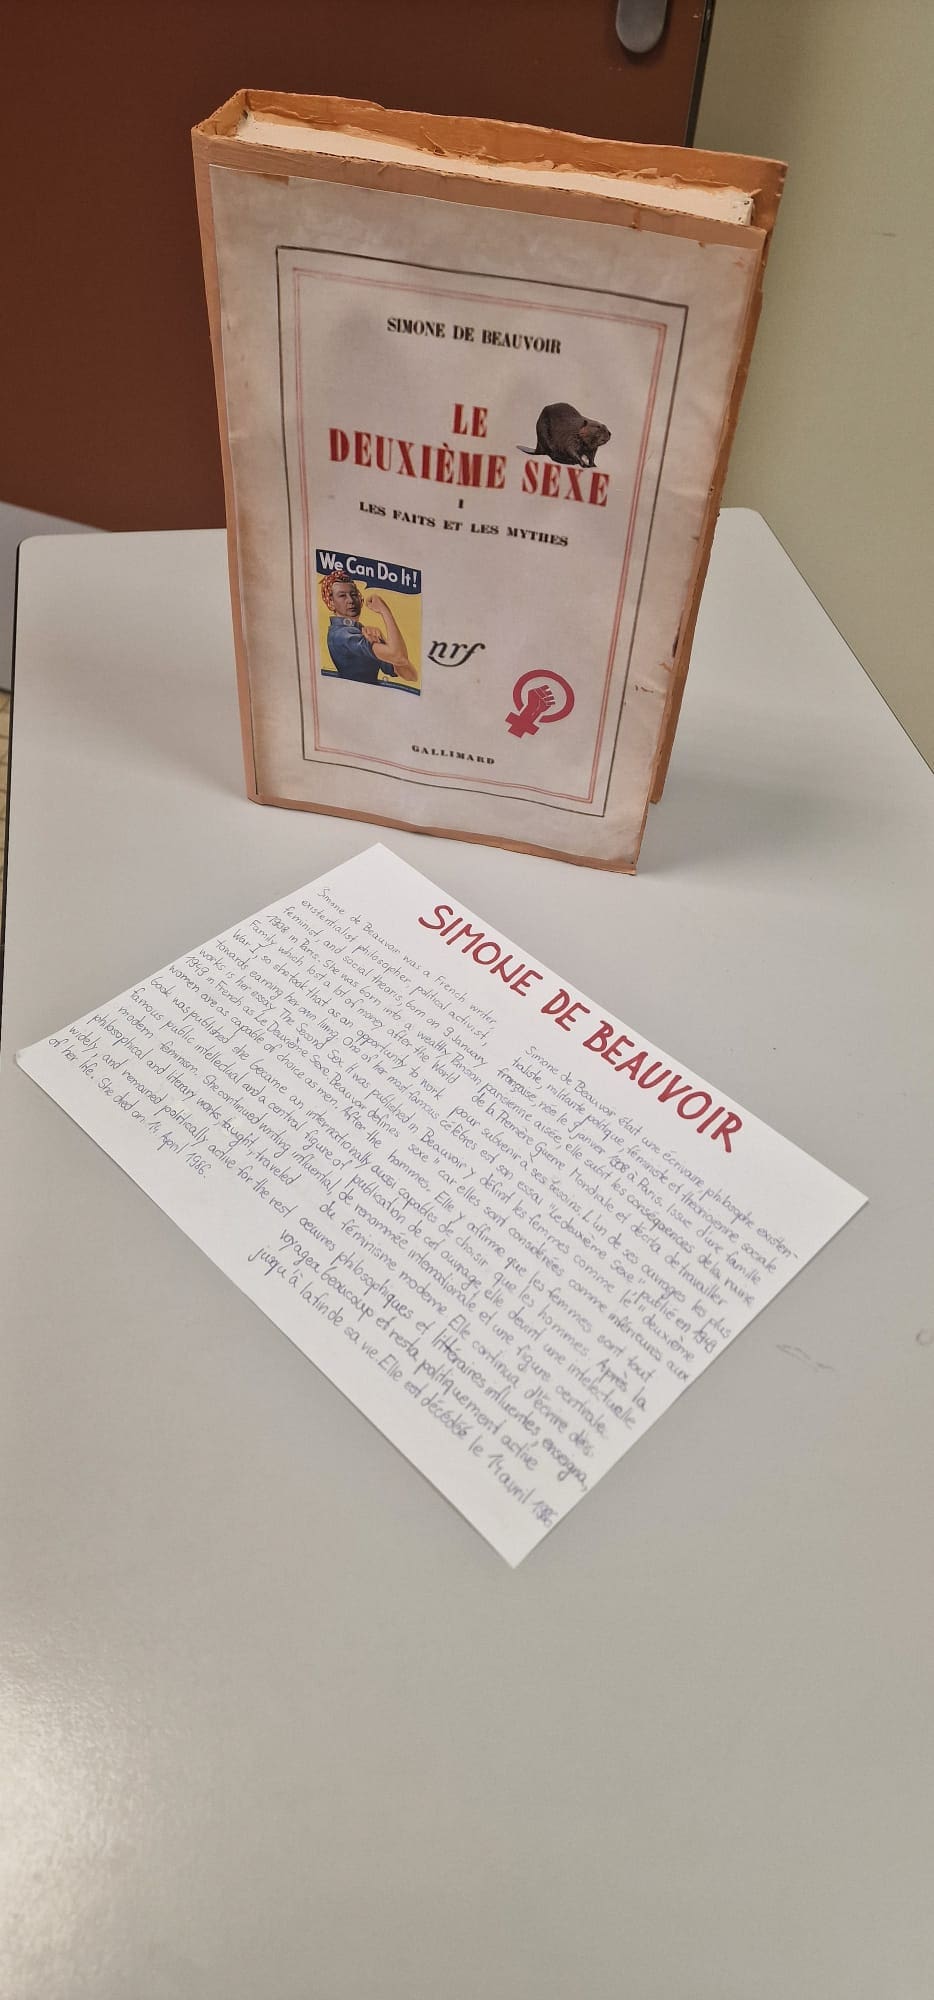 SIMONE DE BEAUVOIR
LE
DEUXIÈME SEXE
I
LES FAITS ET LES MYTHES
We Can Do It!
nrf
GALLIMARD
SIMONE DE BEAUVOIR
Simone de Beauvoir was a French writer,
existentialist philosopher, political activist,
feminist, and social theorist, born on 9 January
1908 in Paris. She was born into a wealthy Parisian
family which lost a lot of money after the World
War I, so she took that as an opportunity to work
towards earning her own living. One of her most famous
works is her essay The Second Sex. It was published in
1949 in French as Le Deuxième Sexe. Beauvoir defines
women are as capable of choice as men. After the
book was published she became an internationally
famous public intellectual and a central figure of
modern feminism. She continued writing influential,
philosophical and literary works, taught, traveled
widely, and remained politically active for the rest
of her life. She died on 14 April 1986.
Simone de Beauvoir était une écrivaine philosophe existen-
tialiste, militante politique, féministe et théoricienne sociale
française, née le 9 janvier 1908 à Paris. Issue d'une famille
parisienne aisée, elle subit les conséquences de la ruine
de la Première Guerre Mondiale et décida de travailler
pour subvenir à ses besoins. L'un de ses ouvrages les plus
célèbres est son essai "Le deuxième sexe" publié en 1949
Beauvoir y définit les femmes comme le "deuxième
sexe" car elles sont considérées comme inférieures aux
hommes. Elle y affirme que les femmes sont tout
aussi capables de choisir que les hommes. Après la
publication de cet ouvrage, elle devint une intelectuelle
de renommée internationale et une figure centrale
du féminisme moderne. Elle continua d'écrire des
œuvres philosophiques et littéraires influentes, enseigna,
voyagea beaucoup et resta politiquement active
jusqu'à la fin de sa vie. Elle est décédée le 14 avril 1986